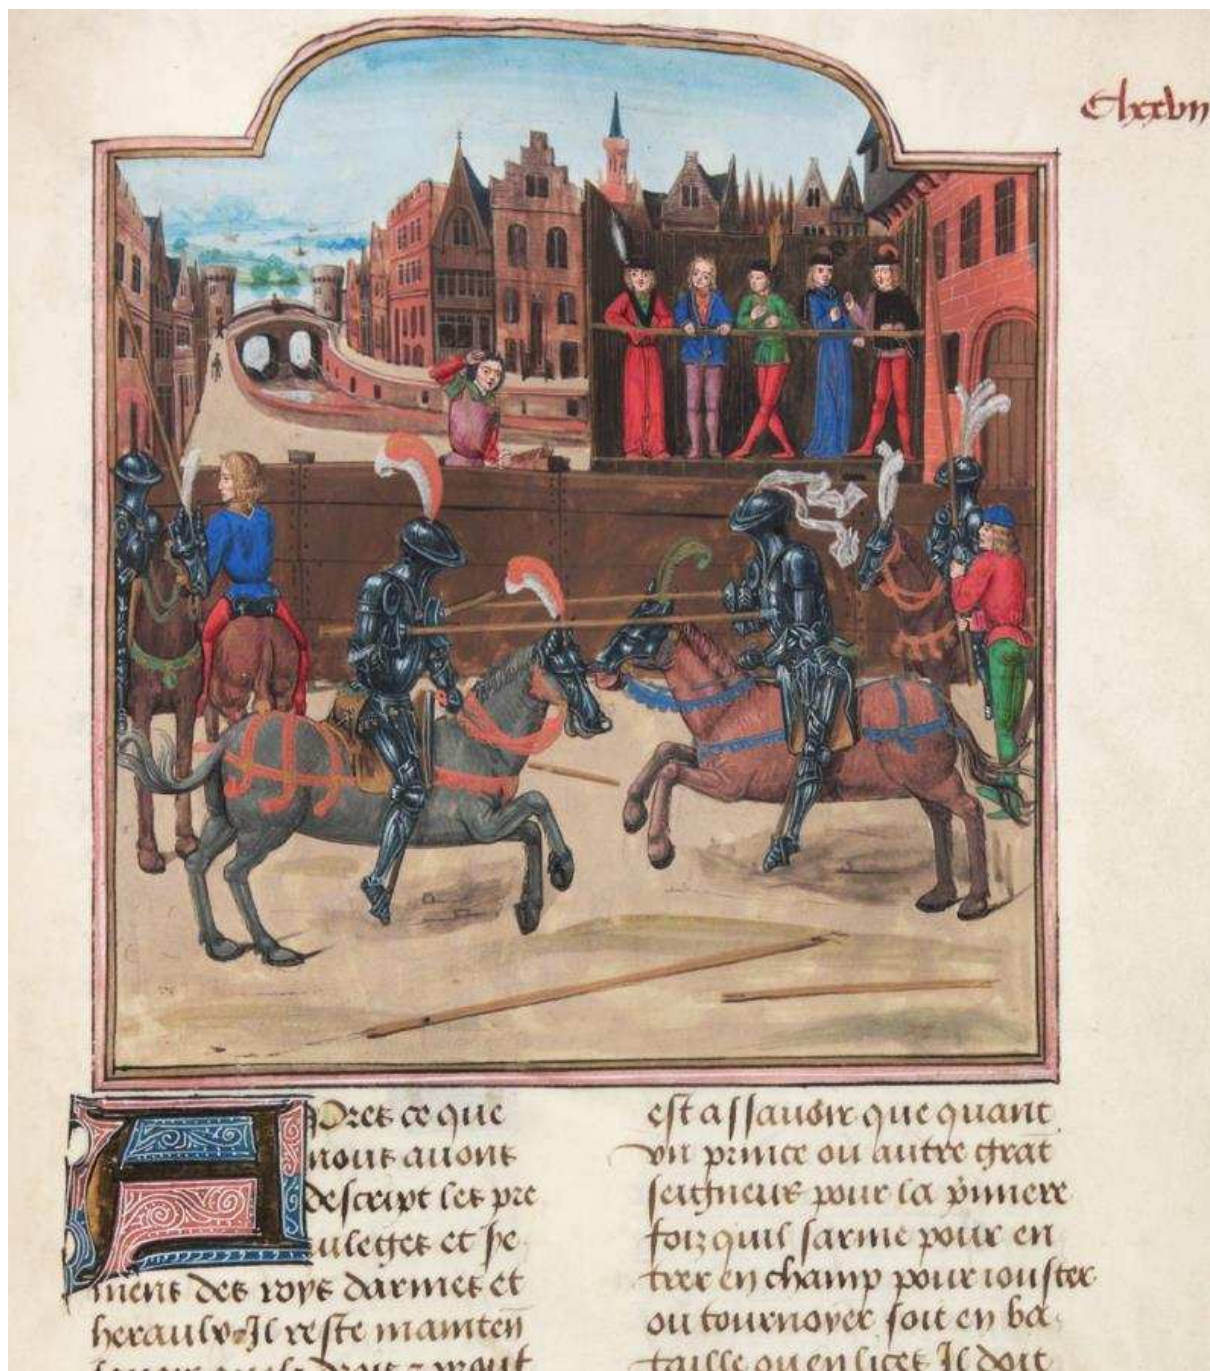 Clxxvii
Apres ce que
nous auons
descript les pre
uileges et se
mens des roys darmes et
heraulx Il reste mainten̄
est assauoir que quant
vn prince ou autre grāt
seigneur pour la p̄miere
foiz quil sarme pour en
trer en champ pour iouster
ou tournoyer soit en ba
taille ou en lices Il doit